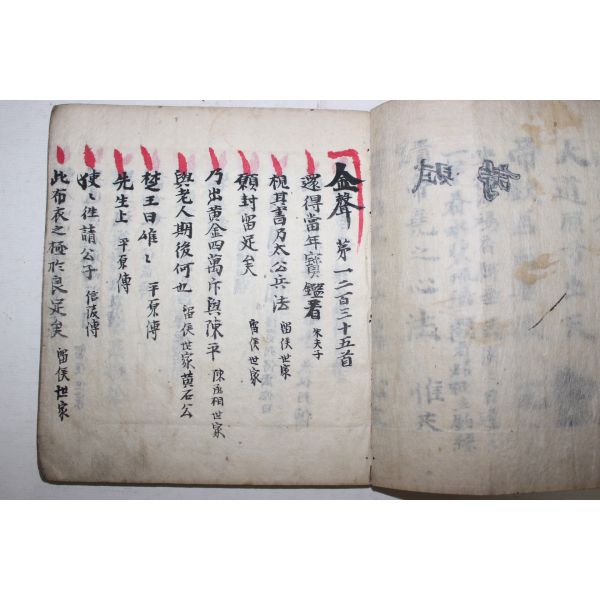 詩賦
金聲 第一二百三十五首
還得當年寶鑑看 朱夫子
視其書乃太公兵法 留侯世家
願封留足矣 留侯世家
乃出黃金四萬斤與陳平 陳丞相世家
與老人期後何也 留侯世家黃石公
楚王曰唯〻 平原傳
先生上 平原傳
使〻往請公子 信陵傳
此布衣之極於良足矣 留侯世家